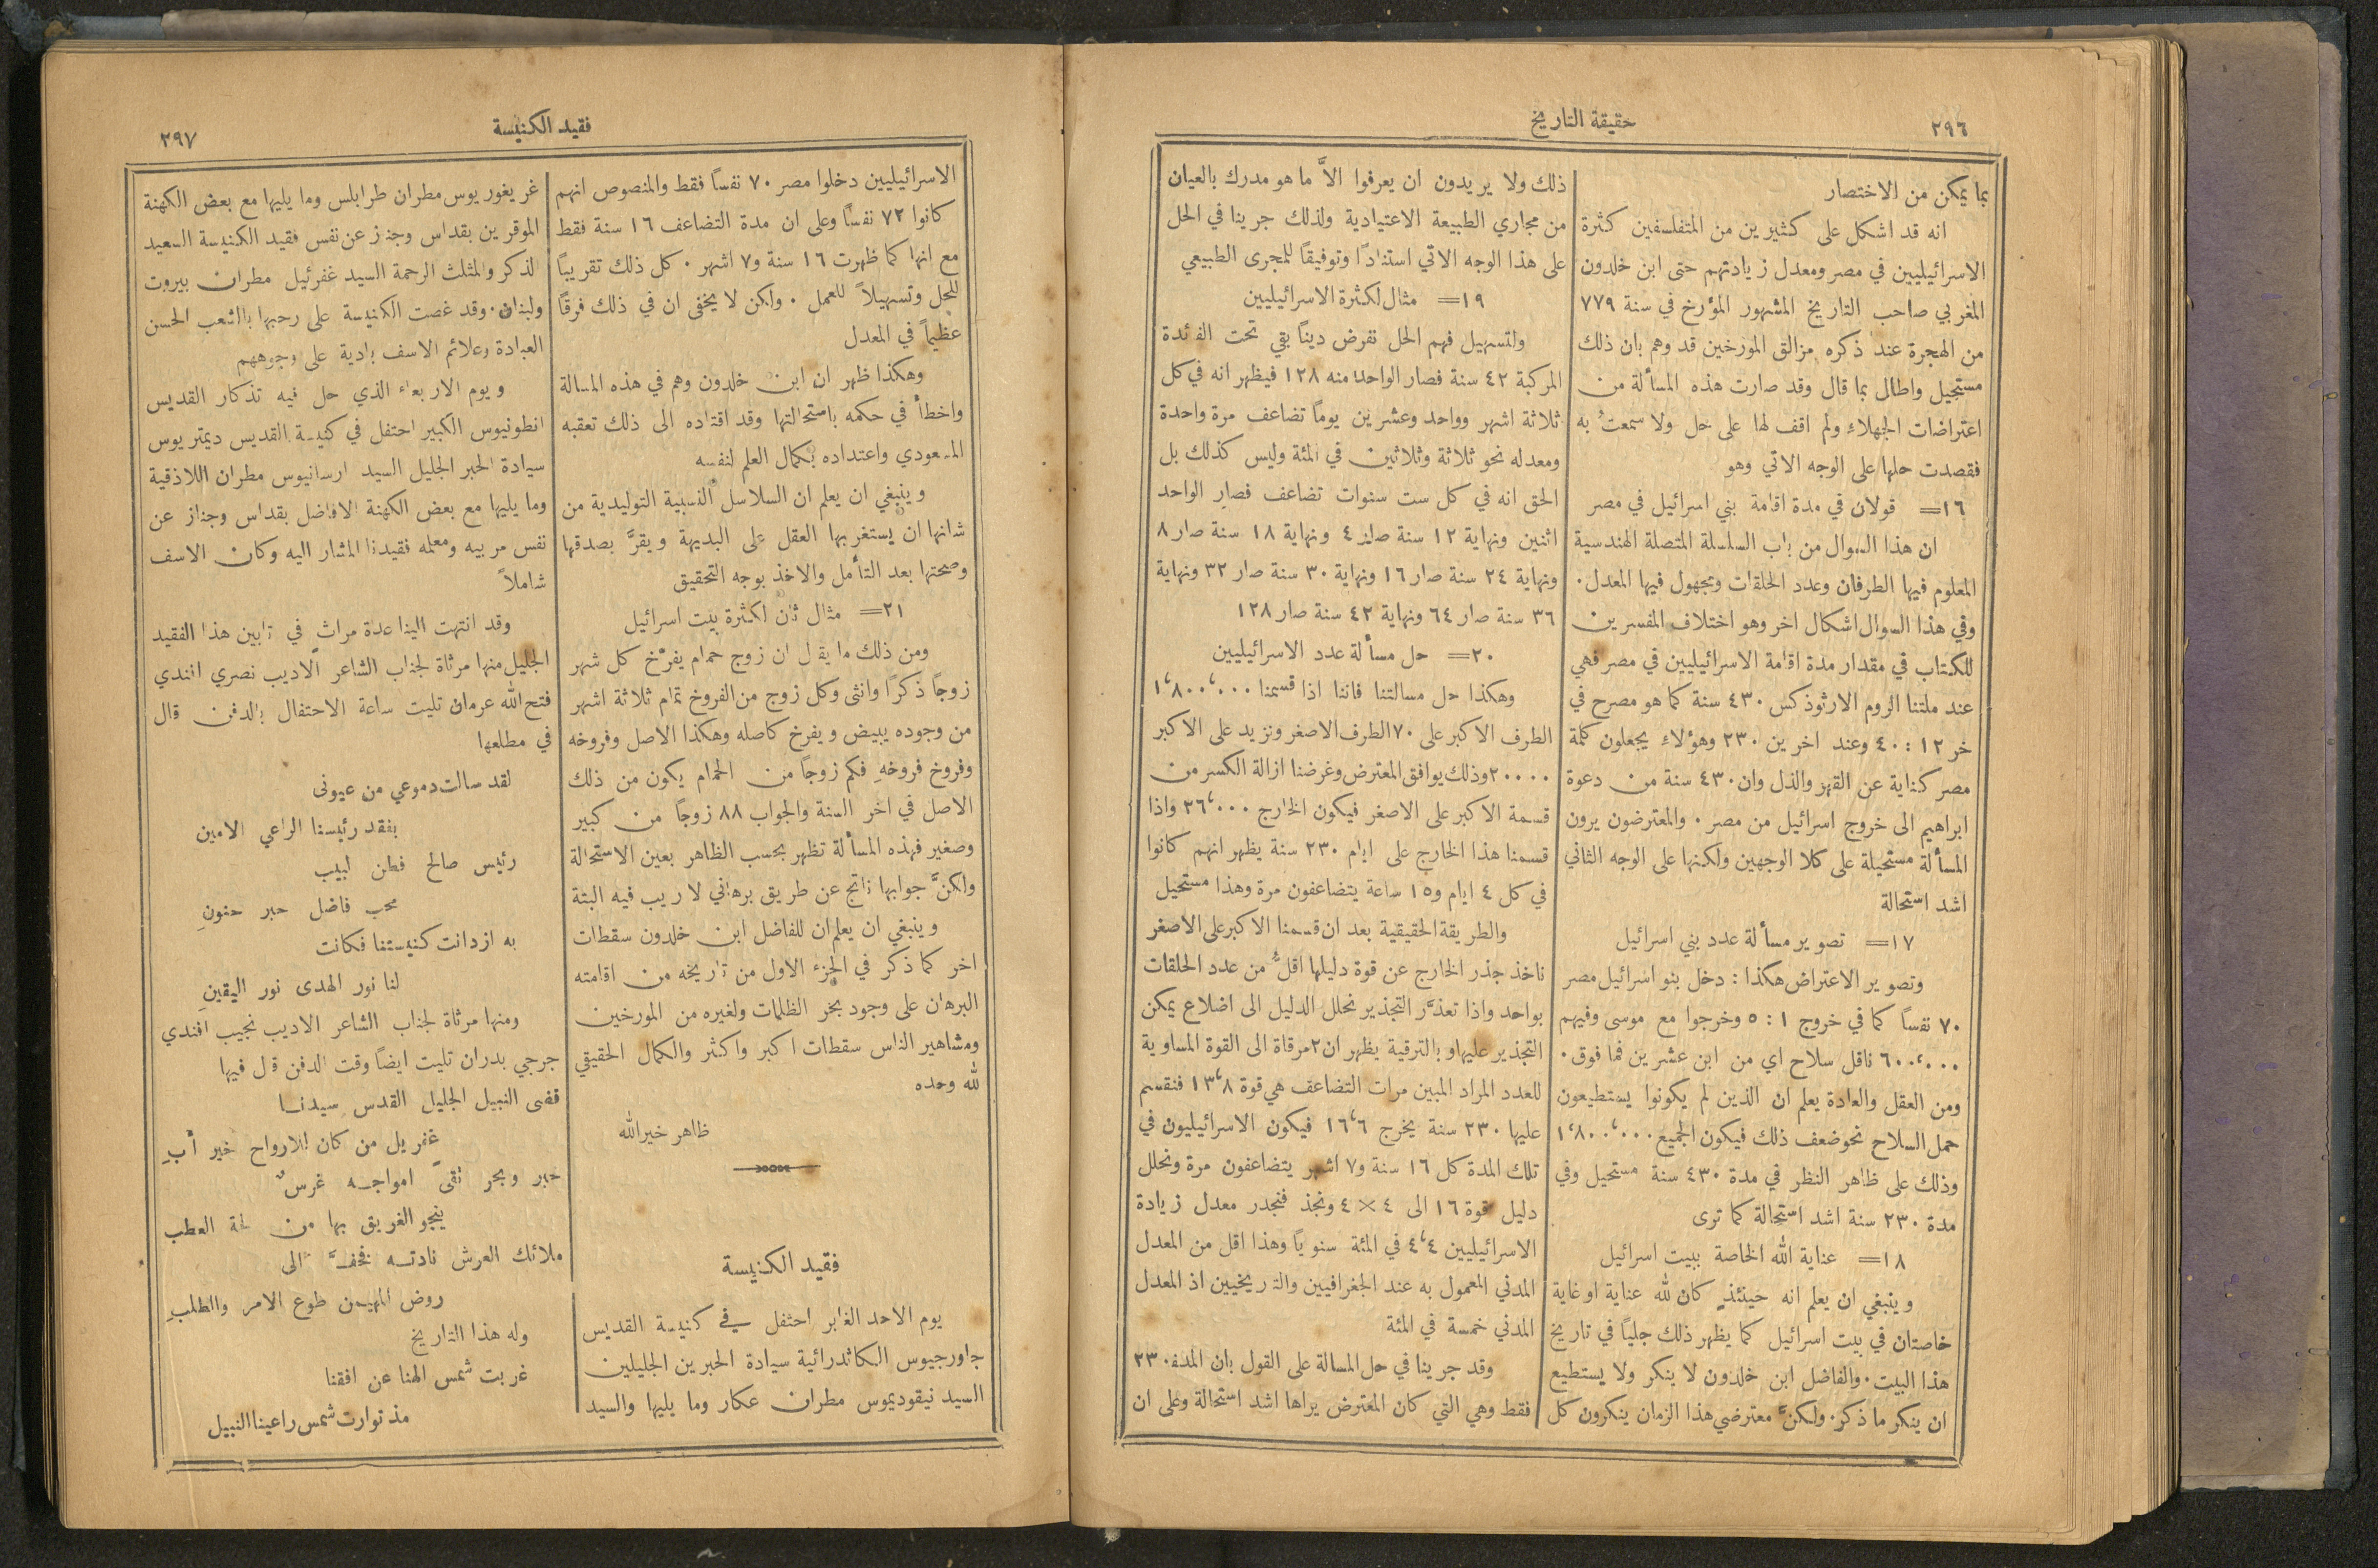 ٢٩٦
حقيقة التاريخ
بما يمكن من الاختصار
انه قد اشكل على كثيرين من المتفلسفين كثرة
الاسرائيليين في مصر ومعدل زيادتهم حتى ابن خلدون
المغربي صاحب التاريخ المشهور المؤرخ في سنة ٧٧٩
من الهجرة عند ذكره مزالق المورخين قد وهم بان ذلك
مستحيل واطال بما قال وقد صارت هذه المسألة من
اعتراضات الجهلاء ولم اقف لها على حل ولا سمعتُ به
فقصدت حلها على الوجه الاتي وهو
١٦= قولان في مدة اقامة بني اسرائيل في مصر
ان هذا السوال من باب السلسلة المتصلة الهندسية
المعلوم فيها الطرفان وعدد الحلقات ومجهول فيها المعدل.
وفي هذا السوال اشكال اخر وهو اختلاف المفسرين
للكتاب في مقدار مدة اقامة الاسرائيليين في مصر فهي
عند ملتنا الروم الارثوذكس ٤٣٠ سنة كما هو مصرح في
خر ١٢ : ٤٠ وعند اخرين ٢٣٠ وهؤلاء يجعلون كلمة
مصر كناية عن القهر والذل وان ٤٣٠ سنة من دعوة
ابراهيم الى خروج اسرائيل من مصر. والمعترضون يرون
المسألة مستحيلة على كلا الوجهين ولكنها على الوجه الثاني
اشد استحالة
١٧= تصوير مسألة عدد بني اسرائيل
وتصوير الاعتراض هكذا : دخل بنو اسرائيل مصر
٧٠ نفساً كما في خروج ١ : ٥ وخرجوا مع موسى وفيهم
٦٠٠،٠٠٠ ناقل سلاح اي من ابن عشرين فما فوق.
ومن العقل والعادة يعلم ان الذين لم يكونوا يستطيعون
حمل السلاح نحو ضعف ذلك فيكون الجميع ١،٨٠٠،٠٠٠
وذلك على ظاهر النظر في مدة ٤٣٠ سنة مستحيل وفي
مدة ٢٣٠ سنة اشد استحالة كما ترى
١٨= عناية الله الخاصة ببيت اسرائيل
وينبغي ان يعلم انه حينئذٍ كان لله عناية او غاية
خاصتان في بيت اسرائيل كما يظهر ذلك جلياً في تاريخ
هذا البيت. والفاضل ابن خلدون لا ينكر ولا يستطيع
ان ينكر ما ذكر. ولكنَّ معترضي هذا الزمان ينكرون كل
ذلك ولا يريدون ان يعرفوا الاَّ ما هو مدرك بالعيان
من مجاري الطبيعة الاعتيادية ولذلك جرينا في الحل
على هذا الوجه الاتي استناداً وتوفيقاً للمجرى الطبيعي
١٩= مثال لكثرة الاسرائيليين
ولتسهيل فهم الحل نفرض ديناً بقي تحت الفائدة
المركبة ٤٢ سنة فصار الواحد منه ١٢٨ فيظهر انه في كل
ثلاثة اشهر وواحد وعشرين يوماً تضاعف مرة واحدة
ومعدله نحو ثلاثة وثلاثين في المئة وليس كذلك بل
الحق انه في كل ست سنوات تضاعف فصار الواحد
اثنين ونهاية ١٢ سنة صار ٤ ونهاية ١٨ سنة صار ٨
ونهاية ٢٤ سنة صار ١٦ ونهاية ٣٠ سنة صار ٣٢ ونهاية
٣٦ سنة صار ٦٤ ونهاية ٤٢ سنة صار ١٢٨
٢٠= حل مسألة عدد الاسرائيليين
وهكذا حل مسالتنا فاننا اذا قسمنا ١،٨٠٠،٠٠٠
الطرف الاكبر على ٧٠ الطرف الاصغر ونزيد على الاكبر
٢٠٠٠٠ وذلك يوافق المعترض وغرضنا ازالة الكسر من
قسمة الاكبر على الاصغر فيكون الخارج ٢٦،٠٠٠ واذا
قسمنا هذا الخارج على ايام ٢٣٠ سنة يظهر انهم كانوا
في كل ٤ ايام و١٥ ساعة يتضاعفون مرة وهذا مستحيل
والطريقة الحقيقية بعد ان قسمنا الاكبر على الاصغر
ناخذ جذر الخارج عن قوة دليلها اقلُّ من عدد الحلقات
بواحد واذا تعذَّر التجذير نحلل الدليل الى اضلاع يمكن
التجذير عليها او بالترقية يظهر ان ٢ مرقاة الى القوة المساوية
للعدد المراد المبين مرات التضاعف هي قوة ١٣،٨ فنقسم
عليها ٢٣٠ سنة يخرج ١٦،٦ فيكون الاسرائيليون في
تلك المدة كل ١٦ سنة و٧ اشهر يتضاعفون مرة ونحلل
دليل قوة ١٦ الى ٤ × ٤ ونجذ فنجدر معدل زيادة
الاسرائيليين ٤،٤ في المئة سنوياً وهذا اقل من المعدل
المدني المعمول به عند الجغرافيين والتاريخيين اذ المعدل
المدني خمسة في المئة
وقد جرينا في حل المسالة على القول بان المدة ٢٣٠
فقط وهي التي كان المعترض يراها اشد استحالة وعلى ان
فقيد الكنيسة
٢٩٧
الاسرائيليين دخلوا مصر ٧٠ نفساً فقط والمنصوص انهم
كانوا ٧٢ نفساً وعلى ان مدة التضاعف ١٦ سنة فقط
مع انها كما ظهرت ١٦ سنة و٧ اشهر. كل ذلك تقريباً
للحل وتسهيلاً للعمل. ولكن لا يخفى ان في ذلك فرقاً
عظيماً في المعدل
وهكذا ظهر ان ابن خلدون وهم في هذه المسالة
واخطأ في حكمه باستحالتها وقد اقتاده الى ذلك تعقبه
المسعودي واعتداده بكمال العلم لنفسه
وينبغي ان يعلم ان السلاسل النسبية التوليدية من
شانها ان يستغربها العقل على البديهة ويقرَّ بصدقها
وصحتها بعد التأمل والاخذ بوجه التحقيق
٢١= مثال ثان لكثرة بيت اسرائيل
ومن ذلك ما يقال ان زوج حمام يفرّخ كل شهر
زوجاً ذكراً وانثى وكل زوج من الفروخ تمام ثلاثة اشهر
من وجوده يبيض ويفرخ كاصله وهكذا الاصل وفروخه
وفروخ فروخهِ فكم زوجاً من الحمام يكون من ذلك
الاصل في اخر السنة والجواب ٨٨ زوجاً من كبير
وصغير فهذه المسألة تظهر بحسب الظاهر بعين الاستحالة
ولكنَّ جوابها ناتج عن طريق برهاني لا ريب فيه البتة
وينبغي ان يعلم ان للفاضل ابن خلدون سقطات
اخر كما ذكر في الجزء الاول من تاريخه من اقامته
البرهان على وجود بحر الظلمات ولغيره من المورخين
ومشاهير الناس سقطات اكبر واكثر والكمال الحقيقي
لله وحده
ظاهر خير الله
فقيد الكنيسة
يوم الاحد الغابر احتفل في كنيسة القديس
جاورجيوس الكاثدرائية سيادة الحبرين الجليلين
السيد نيقوديموس مطران عكار وما يليها والسيد
غريغوريوس مطران طرابلس وما يليها مع بعض الكهنة
الموقرين بقداس وجناز عن نفس فقيد الكنيسة السعيد
الذكر والمثلث الرحمة السيد غفرئيل مطران بيروت
ولبنان. وقد غصت الكنيسة على رحبها بالشعب الحسن
العبادة وعلائم الاسف بادية على وجوههم
ويوم الاربعاء الذي حل فيه تذكار القديس
انطونيوس الكبير احتفل في كنيسة القديس ديمتريوس
سيادة الحبر الجليل السيد ارسانيوس مطران اللاذقية
وما يليها مع بعض الكهنة الافاضل بقداس وجناز عن
نفس مربيه ومعلمه فقيدنا المشار اليه وكان الاسف
شاملاً
وقد انتهت الينا عدة مراثٍ في تابين هذا الفقيد
الجليل منها مرثاة لجناب الشاعر الاديب نصري افندي
فتح الله عرمان تليت ساعة الاحتفال بالدفن قال
في مطلعها
لقد سالت دموعي من عيونى
بفقد رئيسنا الراعي الامين
رئيس صالح فطن لبيب
محب فاضل حبر حنونِ
به ازدانت كنيستنا فكانت
لنا نور الهدى نور اليقينِ
ومنها مرثاة لجناب الشاعر الاديب نجيب افندي
جرجي بدران تليت ايضاً وقت الدفن قال فيها
قضى النبيل الجليل القدس سيدنا
غفريل من كان للارواح خير أبِ
حبر وبحر تقىً امواجه غرسٌ
ينجو الغريق بها من لجة العطب
ملائك العرش نادته فخفَّ الى
روض المهيمن طوع الامر والطلبِ
وله هذا التاريخ
غربت شمس الهنا عن افقنا
مذ توارت شمس راعينا النبيل